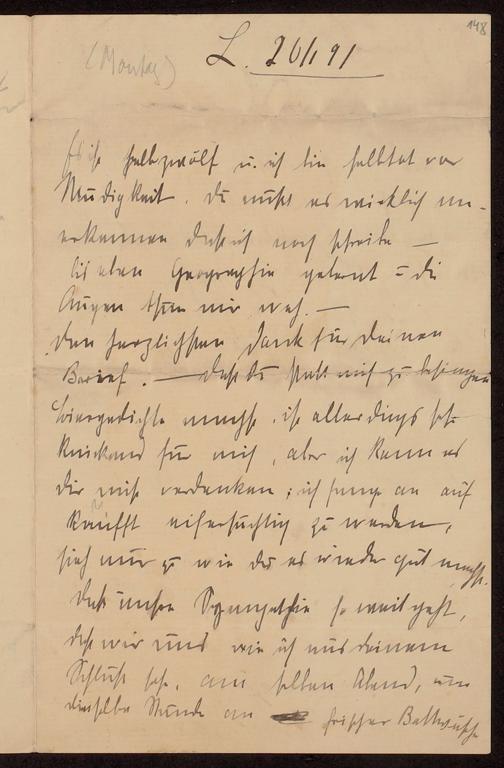 148
(Montag)
L. 26/1 91
Es ist halbzwölf u. ich bin halbtot vor
Müdigkeit. Du mußt es wirklich an-
erkennen daß ich noch schreibe —
bis eben Geographie gelernt u. die
Augen thun mir weh. —
Den herzlichsten Dank für Deinen
Brief. — daß Du statt mich zu besingen
Biergedichte machst, ist allerdings sehr
kränkend für mich, aber ich kann es
Dir nicht verdenken; ich fange an auf
eifersüchtig zu werden,
sieh nur zu wie Du es wieder gut machst.
Daß unsre Sympathie so weit geht,
daß wir uns wie ich aus deinem
Schluß sehe, am selben Abend, um
dieselbe Stunde an frischer Bettwäsche